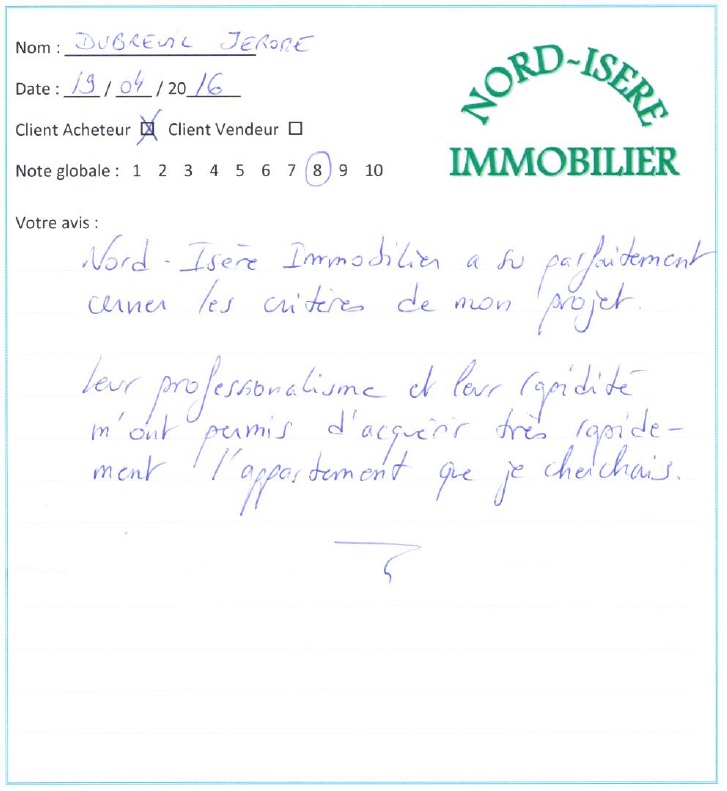 Nom : DUBREUIL JEROME
NORD-ISERE
IMMOBILIER
Date : 19 / 04 / 2016
Client Acheteur ☒ Client Vendeur ☐
Note globale : 1 2 3 4 5 6 7 8 9 10
Votre avis :
Nord-Isère Immobilier a su parfaitement
cerner les critères de mon projet.
Leur professionalisme et leur rapidité
m'ont permis d'acquérir très rapide-
ment l'appartement que je cherchais.